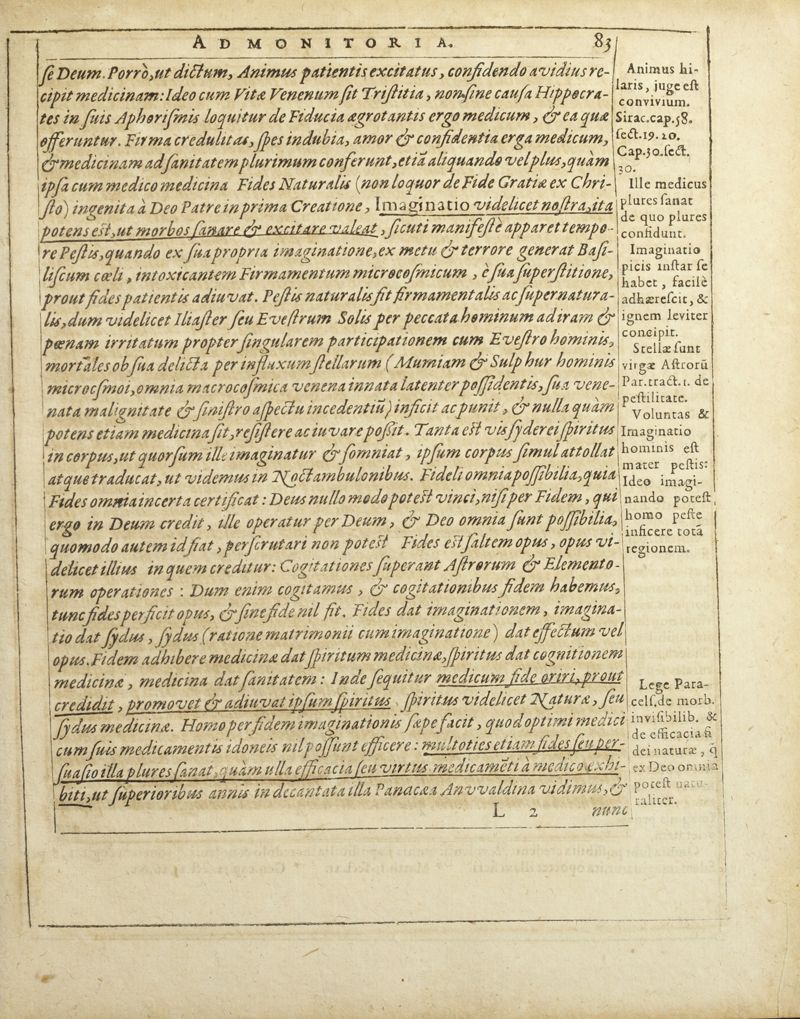 ADMONITORIA. 83
ſe Deum. Porrò, ut dictum, Animus patientis excitatus, confidendo avidius re-
cipit medicinam: Ideo cum Vitæ Venenum ſit Triſtitia, non ſine cauſa Hippocra-
tes in ſuis Aphoriſmis loquitur de Fiducia ægrotantis ergo medicum, & ea quæ
offeruntur. Firma credulitas, ſpes indubia, amor & confidentia erga medicum,
& medicinam ad ſanitatem plurimum conferunt, etiã aliquando vel plus, quàm
ipſa cum medico medicina Fides Naturalis (non loquor de Fide Gratiæ ex Chri-
ſto) ingenita à Deo Patre in prima Creatione, Imaginatio videlicet noſtra, ita
potens est, ut morbos ſanare & excitare valeat, ſicuti manifeſtè apparet tempo-
re Peſtis, quando ex ſua propria imaginatione, ex metu & terrore generat Baſi-
liſcum cœli, intoxicantem Firmamentum microcoſmicum, è ſua ſuperſtitione,
prout fides patientis adiuvat. Peſtis naturalis fit firmamentalis ac ſupernatura-
lis, dum videlicet Iliaſter ſeu Eveſtrum Solis per peccata hominum ad iram &
pœnam irritatum propter ſingularem participationem cum Eveſtro hominis,
mortales ob ſua delicta per influxum ſtellarum (Mumiam & Sulphur hominis
microcſmoi, omnia macrocoſmica venena innata latenter poſſidentis, ſua vene-
nata malignitate & ſiniſtro aſpectu incedentiũ) inficit ac punit, & nulla quàm
potens etiam medicina ſit, reſiſtere ac iuvare poſſit. Tanta est vis ſyderei ſpiritus
in corpus, ut quorſum ille imaginatur & ſomniat, ipſum corpus ſimul attollat
atque traducat, ut videmus in Noctambulonibus. Fideli omnia poſſibilia, quia
Fides omnia incerta certificat: Deus nullo modo potest vinci, niſi per Fidem, qui
ergo in Deum credit, ille operatur per Deum, & Deo omnia ſunt poſſibilia,
quomodo autem id fiat, perſcrutari non potest Fides est ſaltem opus, opus vi-
delicet illius in quem creditur: Cogitationes ſuperant Aſtrorum & Elemento-
rum operationes: Dum enim cogitamus, & cogitationibus fidem habemus,
tunc fides perficit opus, & ſine fide nil fit. Fides dat imaginationem, imagina-
tio dat ſydus, ſydus (ratione matrimonii cum imaginatione) dat effectum vel
opus. Fidem adhibere medicinæ dat ſpiritum medicinæ, ſpiritus dat cognitionem
medicinæ, medicina dat ſanitatem: Inde ſequitur medicum fide oriri, prout
credidit, promovet & adiuvat ipſum ſpiritus, ſpiritus videlicet Naturæ, ſeu
ſydus medicinæ. Homo per fidem imaginationis ſæpe facit, quod optimi medici
cum ſuis medicamentis idoneis nil poſſunt efficere: multoties etiam fides ſeu per-
ſuaſio illa plures ſanat, quàm ulla efficacia ſeu virtus medicamẽti à medico exhi-
biti, ut ſuperioribus annis in decantata illa Panacæa Anvvaldina vidimus, &
L 2 nunc
Animus hi-
laris, juge eſt
convivium.
Sirac. cap. 38.
ſect. 19. 20.
Cap. 30. ſect.
30.
Ille medicus
plures ſanat
de quo plures
confidunt.
Imaginatio
picis inſtar ſe
habet, facilè
adhæreſcit, &
ignem leviter
concipit.
Stellæ ſunt
virgæ Aſtrorũ
Par. tract. 1. de
peſtilitate.
Voluntas &
Imaginatio
hominis eſt
mater peſtis:
Ideo imagi-
nando poteſt
homo peſte
inficere totã
regionem.
Lege Para-
celſ. de morb.
inviſibilib. &
de efficacia fi
dei naturæ, q
ex Deo omnia
poteſt natu-
raliter.